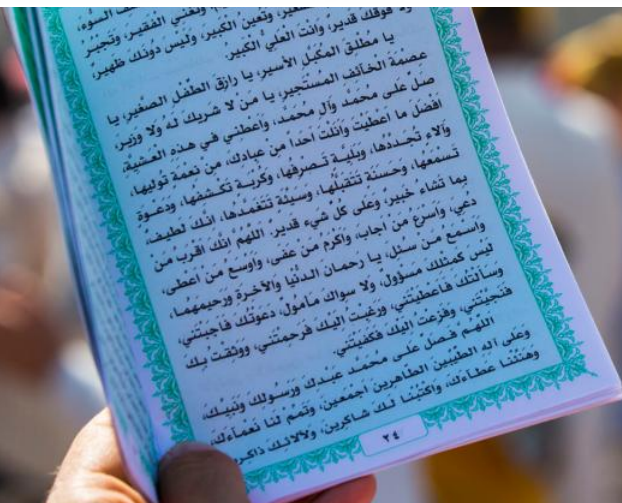 السوء،
الصغير، وتعين الكبير، وتغني الفقير، وتجبر
ولا فوقك قدير، وانت العلي الكبير. وليس دونك ظهير،
يا مطلق المكبل الأسير، يا رازق الطفل الصغير، يا
عصمة الخائف المستجير، يا من لا شريك له ولا وزير،
صل على محمد وآل محمد، واعطني في هذه العشية،
افضل ما اعطيت وانلت احدا من عبادك، من نعمة توليها،
وآلاء تجددها، وبلية تصرفها، وكربة تكشفها، ودعوة
تسمعها، وحسنة تتقبلها، وسيئة تتغمدها، انك لطيف
بما تشاء خبير، وعلى كل شيء قدير. اللهم انك اقرب من
دعي، واسرع من اجاب، واكرم من عفى، واوسع من اعطى،
واسمع من سئل، يا رحمان الدنيا والآخرة ورحيمهما،
ليس كمثلك مسؤول، ولا سواك مأمول، دعوتك فاجبتني،
وسألتك فاعطيتني، ورغبت اليك فرحمتني، ووثقت بك
فنجيتني، وفزعت اليك فكفيتني.
اللهم فصل على محمد عبدك ورسولك ونبيك،
وعلى آله الطيبين الطاهرين اجمعين، وتمم لنا نعماءك،
وهنئنا عطاءك، واكتبنا لك شاكرين، ولآلائك ذاكرين
٢٤